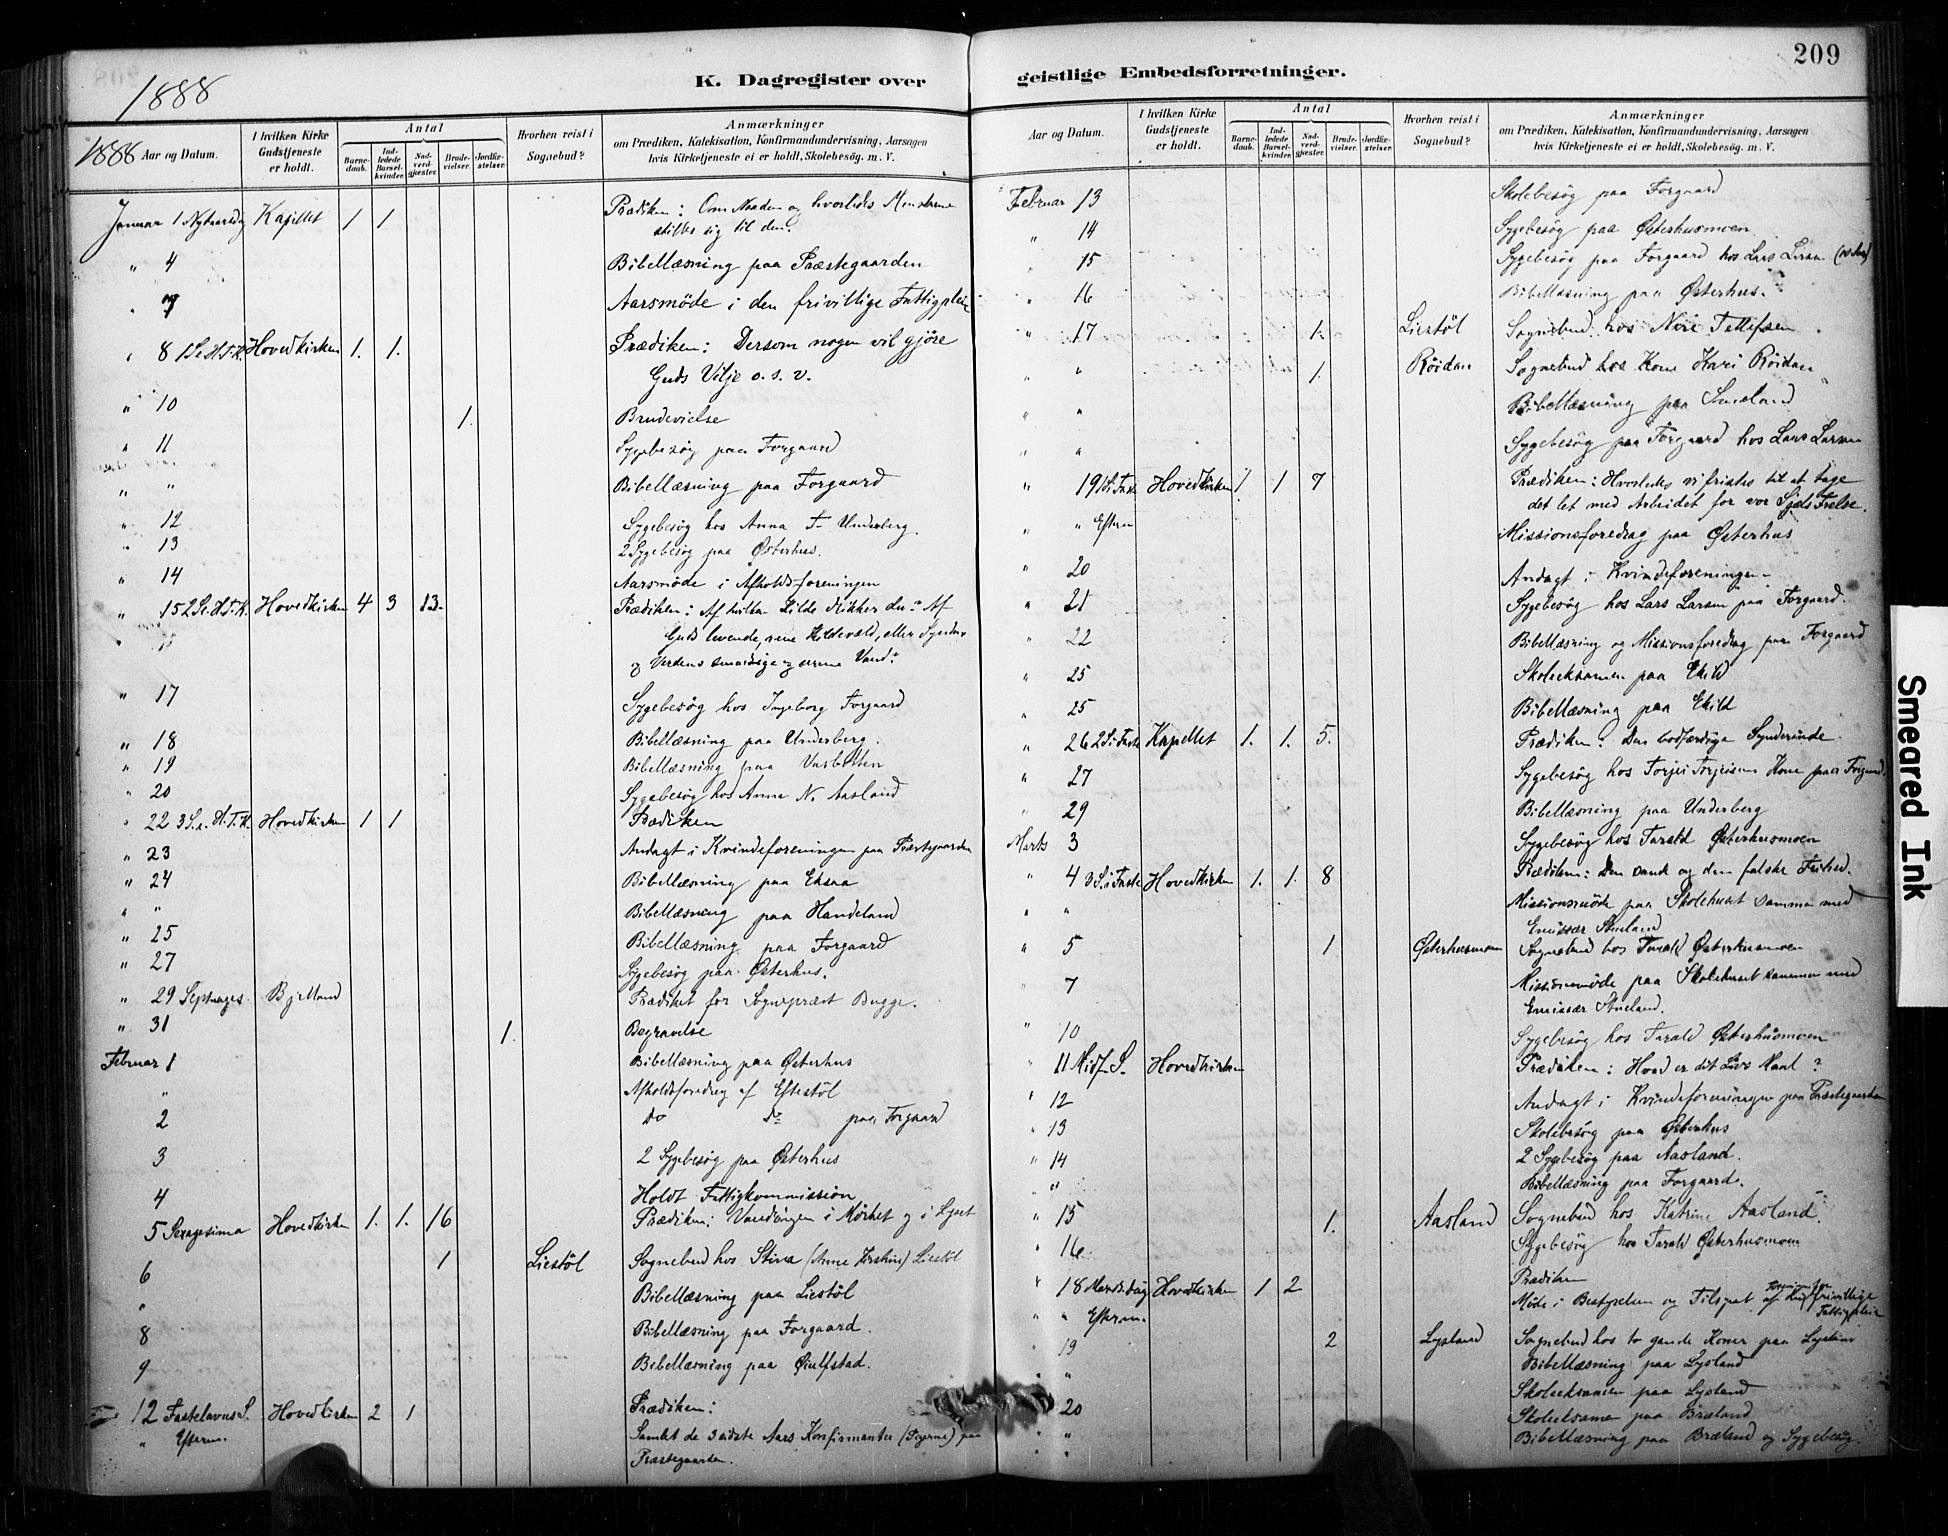 209
1888
K. Dagregister over geistlige Embedsforretninger.
1888 Aar og Datum.
I hvilken Kirke Gudstjeneste er holdt.
Antal
Barnedaab.
Indledede Barselkvinder.
Nadverdgjæster.
Brudevielser.
Jordfæstelser.
Hvorhen reist i Sognebud?
Anmærkninger
om Prædiken, Katekisation, Konfirmandundervisning, Aarsagen
hvis Kirketjeneste ei er holdt, Skolebesög. m. V.
Januar 1 Nytaarsdag Kapellet 1 1 Prædiken: Om Naaden og hvorledes Menskene
stiller sig til den.
" 4 Bibellæsning paa Præstegaarden
" 7 Aarsmöde i den frivillige Fattigpleie
" 8 1 S.e.H.T.K. Hovedkirken 1. 1. Prædiken: Dersom nogen vil gjöre
Guds Vilje o. s. v.
" 10 1. Brudevielse
" 11 Sygebesög paa Forgaard
" " Bibellæsning paa Forgaard
" 12 Sygebesög hos Anna T. Underberg.
" 13 2 Sygebesög paa Østerhus.
" 14 Aarsmöde i Afholdsforeningen
" 15 2 S.e.H.T.K. Hovedkirken 4 3 13 Prædiken: Af hvilken Kilde drikker du? Af
Guds levende, rene Kildevæld, eller Syndens
og Verdens smudsige og urene Vand?
" 17 Sygebesög hos Ingeborg Forgaard
" 18 Bibellæsning paa Underberg.
" 19 Bibellæsning paa
" 20 Sygebesög hos Anne N. Aasland
" 22 3 S.e.H.T.K. Hovedkirken 1 1 Prædiken
" 23 Andagt i Kvindeforeningen paa Præstegaarden
" 24 Bibellæsning paa Eksaa
" " Bibellæsning paa Handeland
" 25 Bibellæsning paa Forgaard
" 27 Sygebesög paa Østerhus.
" 29 Septuages. Bjelland Prædiket for Sognepræst Bugge.
" 31 1. Begravelse
Februar 1 Bibellæsning paa Østerhus
" Afholdsforedrag af Eftestöl
2 do do paa Forgaard
3 2 Sygebesög paa Østerhus
4 Holdt Fattigkommission
5 Sexagesima Hovedkirken 1. 1. 16 Prædiken: Vandringen i Mørket og i Lyset
6 1 Liestöl Sognebud hos Stina (Anne Kirstine) Liestöl
" Bibellæsning paa Liestöl
8 Bibellæsning paa Forgaard.
9 Bibellæsning paa
12 Fastelavns S. Hovedkirken 2 1 Prædiken:
" Efterm. Samlet de sidste Aars Konfirmanter (Pigerne) paa
Præstegaarden.
Aar og Datum.
I hvilken Kirke Gudstjeneste er holdt.
Antal
Barnedaab.
Indledede Barselkvinder.
Nadverdgjæster.
Brudevielser.
Jordfæstelser.
Hvorhen reist i Sognebud?
Anmærkninger
om Prædiken, Katekisation, Konfirmandundervisning, Aarsagen
hvis Kirketjeneste ei er holdt, Skolebesög. m. V.
Februar 13 Skolebesög paa Forgaard
" 14 Sygebesög paa Østerhusmoen
" 15 Sygebesög paa Forgaard hos Lars Larsen
" 16 Bibellæsning paa Østerhus.
" 17 1. Liestöl Sognebud hos Neri Tellefsen
" " 1. Röidan Sognebud hos Kone Kari Röidan
" " Bibellæsning paa Stueland
" " Sygebesög paa Forgaard hos Lars Larsen
" 19 1 S. i Faste Hovedkirken 1 1 7 Prædiken: Hvorledes vi fristes til at tage
det let med Arbeidet for vor Sjæls Frelse.
" " Efterm. Missionsforedrag paa Østerhus
" 20 Andagt i Kvindeforeningen
" 21 Sygebesög hos Lars Larsen paa Forgaard.
" 22 Bibellæsning og Missionsforedrag paa Forgaard
" 25 Skoleeksamen paa Ekild
" 25 Bibellæsning paa Ekild
" 26 2 S. i Faste Kapellet 1. 1. 5. Prædiken: Den bodfærdige Synderinde.
" 27 Sygebesög hos Torjei Torjeisens Kone paa Forgaard.
" 29 Bibellæsning paa Underberg
Marts 3 Sygebesög hos Tarald Østerhusmoen
" 4 3 S. i Faste Hovedkirken 1. 1. 8 Prædiken: Den sande og den falske Frihed.
" " Missionsmöde paa Skolehuset samme med
Emissær Stueland
" 5 1 Østerhusmoen Sognebud hos Tarald Østerhusmoen
" 7 Missionsmöde paa Skolehuset sammen med
Emissær Stueland.
" 10 Sygebesög hos Tarald Østerhusmoen
" 11 Midf. S. Hovedkirken Prædiken: Hvad er dit Livs Maal?
" 12 Andagt i Kvindeforeningen paa Præstegaarden
" 13 Skolebesög paa Østerhus
" 14 2 Sygebesög paa Aasland.
" " Bibellæsning paa Forgaard.
" 15 1. Aasland Sognebud hos Katrine Aasland.
" 16 Sygebesög hos Tarald Østerhusmoen
" 18 Hovedkirken 1 2 Prædiken
" " Efterm. Möde i Bestyrelsen og Tilsynet af Foreningen for frivillige
Fattigpleie
" 19 2 Lysland Sognebud hos to gamle Koner paa Lysland
" " Bibellæsning paa Lysland
Skoleeksamen paa Lysland
" 20 Skoleeksamen paa Bræland
" " Bibellæsning paa Bræland og Sygebesög.
Smeared Ink